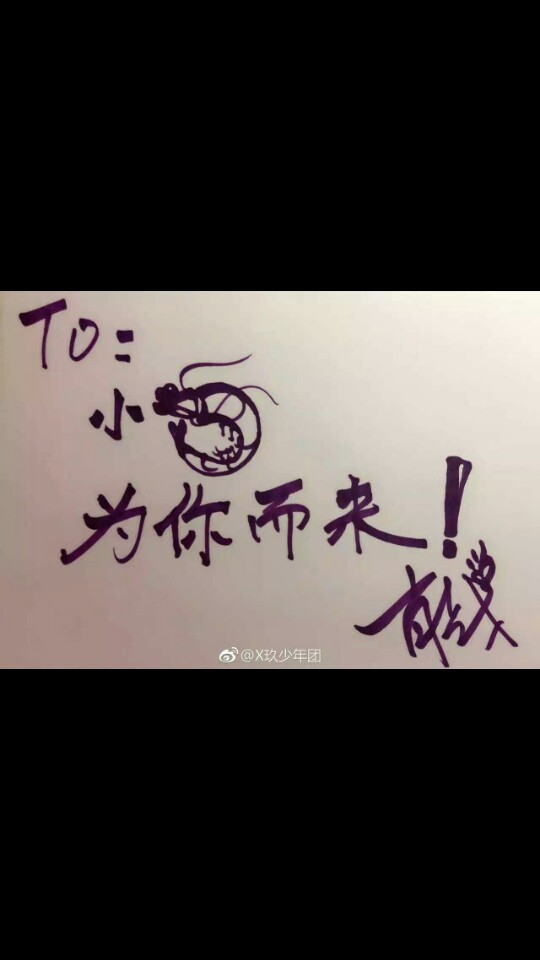 TO:
小
为你而来!
@X玖少年团